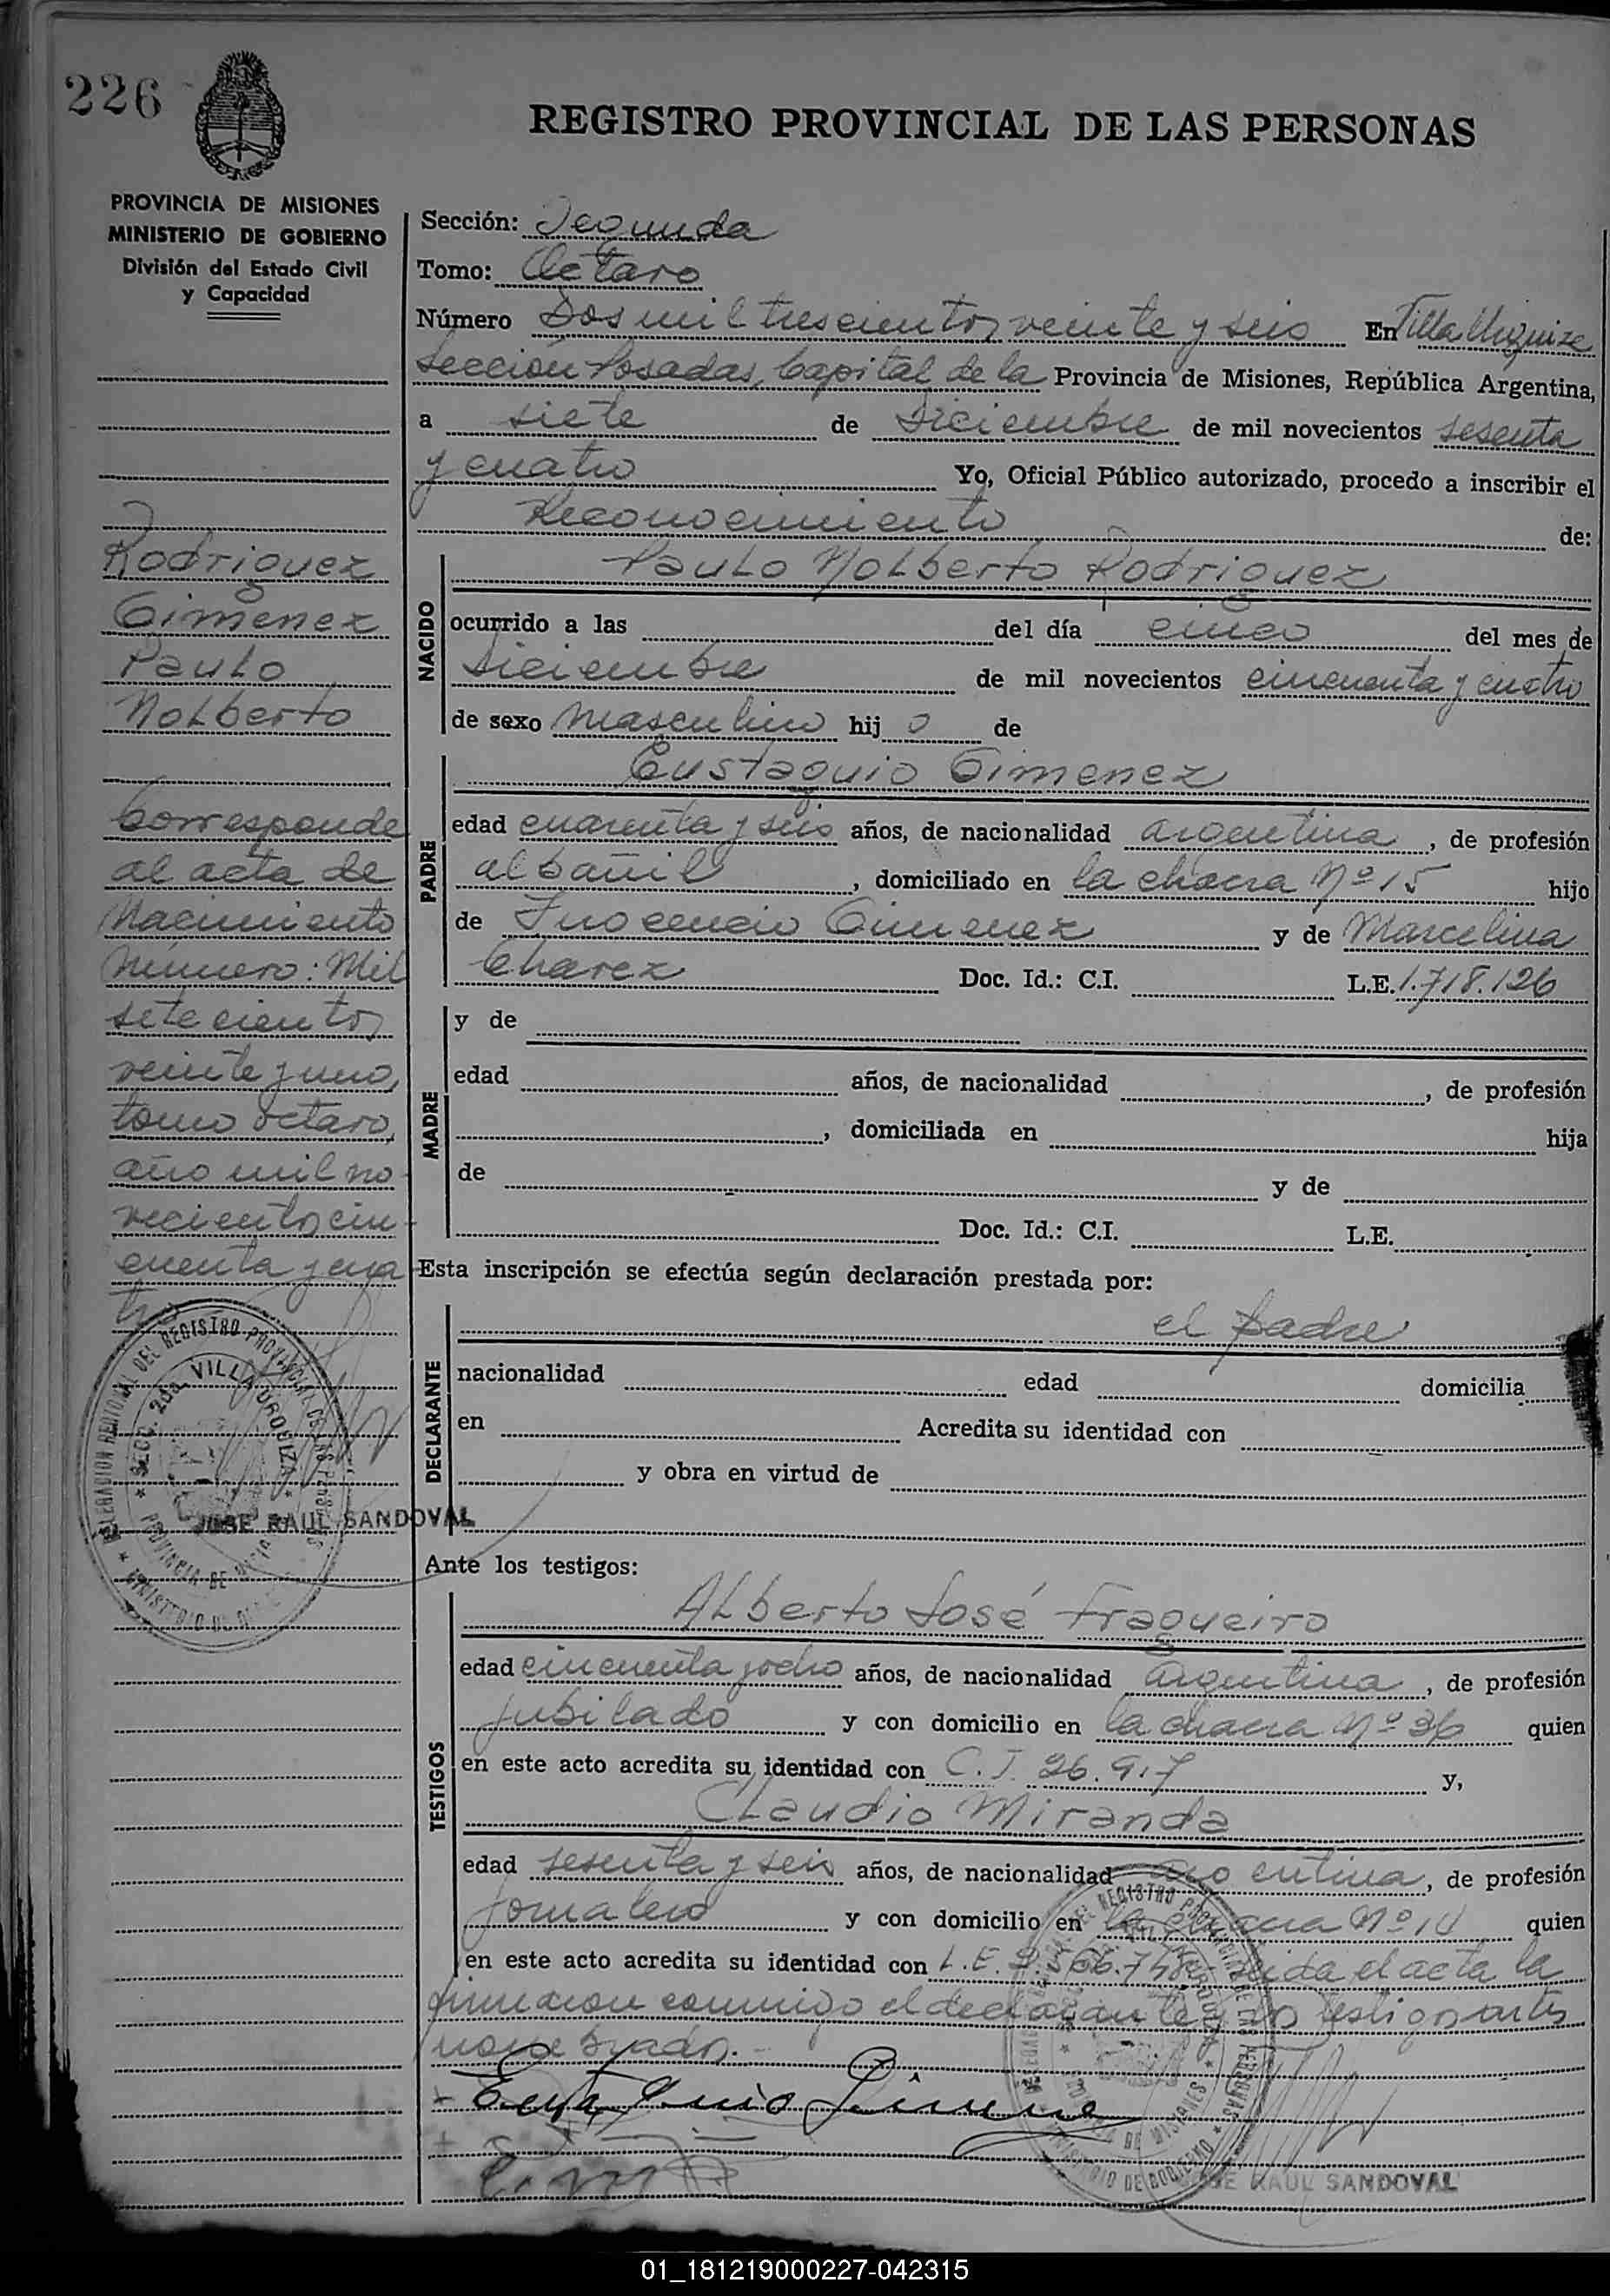 226
REGISTRO PROVINCIAL DE LAS PERSONAS
PROVINCIA DE MISIONES
MINISTERIO DE GOBIERNO
División del Estado Civil
y Capacidad
Rodriguez
Gimenez
Paulo
Nolberto
Corresponde
al acta de
Nacimiento
Número: Mil
setecientos
veinte y uno,
tomo octavo,
año mil no-
vecientos cin-
cuenta y cua
tro
DEL REGISTRO PROVINCIAL DE LAS PERSONAS
SECC. 2da. VILLA URQUIZA
PROVINCIA DE MISIONES
JOSE RAUL SANDOVAL
Sección: Segunda
Tomo: Octavo
Número Dos mil trescientos veinte y seis En Villa Urquiza
Sección Posadas, Capital de la Provincia de Misiones, República Argentina,
a siete de Diciembre de mil novecientos sesenta
y cuatro Yo, Oficial Público autorizado, procedo a inscribir el
Reconocimiento de:
NACIDO
Paulo Nolberto Rodriguez
ocurrido a las del día cinco del mes de
Diciembre de mil novecientos cincuenta y cuatro
de sexo Masculino hij o de
PADRE
Eustaquio Gimenez
edad cuarenta y seis años, de nacionalidad argentina, de profesión
albañil, domiciliado en la chacra Nº 15 hijo
de Inocencio Gimenez y de Marcelina
Chavez Doc. Id.: C.I. L.E. 1.718.126
MADRE
y de
edad años, de nacionalidad , de profesión
, domiciliada en hija
de y de
Doc. Id.: C.I. L.E.
Esta inscripción se efectúa según declaración prestada por:
DECLARANTE
el padre
nacionalidad edad domicilia
en Acredita su identidad con
y obra en virtud de
Ante los testigos:
TESTIGOS
Alberto José Fragueiro
edad cincuenta y ocho años, de nacionalidad argentina, de profesión
jubilado y con domicilio en la chacra Nº 36 quien
en este acto acredita su identidad con C.I. 26.917 y,
Claudio Miranda
edad sesenta y seis años, de nacionalidad argentina, de profesión
jornalero y con domicilio en la chacra Nº 14 quien
en este acto acredita su identidad con L.E. Leida el acta la
firmaron conmigo el declarante y los testigos antes
nombrados.-
Eustaquio Gimene
JOSE RAUL SANDOVAL
01_181219000227-042315